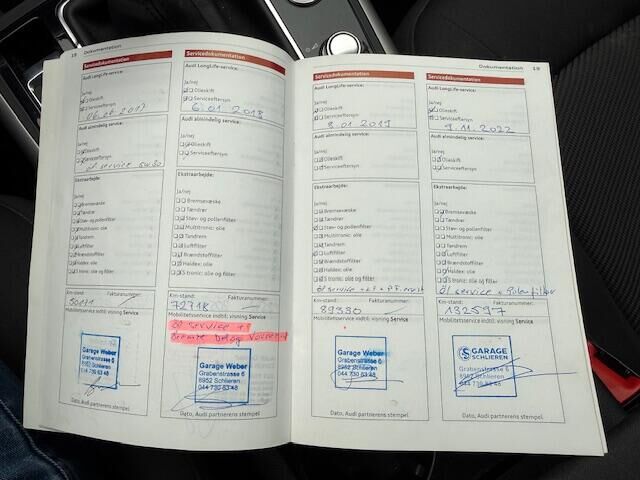 18 Dokumentation
Servicedokumentation
Audi LongLife-service:
Ja/nej
Olieskift
Serviceeftersyn
Audi almindelig service:
Ja/nej
Olieskift
Serviceeftersyn
Ekstraarbejde:
Ja/nej
Bremsevæske
Tændrør
Støv- og pollenfilter
Multitronic: olie
Tandrem
Luftfilter
Brændstoffilter
Haldex: olie
S tronic: olie og filter
Km-stand: Fakturanummer:
Mobilitetsservice indtil: visning Service
Garage Weber
Grabenstrasse 6
8952 Schlieren
044 730 63 48
Dato, Audi partnerens stempel
Servicedokumentation
Audi LongLife-service:
Ja/nej
Olieskift
Serviceeftersyn
6.01.2018
Audi almindelig service:
Ja/nej
Olieskift
Serviceeftersyn
Ekstraarbejde:
Ja/nej
Bremsevæske
Tændrør
Støv- og pollenfilter
Multitronic: olie
Tandrem
Luftfilter
Brændstoffilter
Haldex: olie
S tronic: olie og filter
Km-stand: Fakturanummer:
72718
Mobilitetsservice indtil: visning Service
Öl service
Garage Weber
Grabenstrasse 6
8952 Schlieren
044 730 63 48
Dato, Audi partnerens stempel
Dokumentation 19
Servicedokumentation
Audi LongLife-service:
Ja/nej
Olieskift
Serviceeftersyn
8.01.2019
Audi almindelig service:
Ja/nej
Olieskift
Serviceeftersyn
Ekstraarbejde:
Ja/nej
Bremsevæske
Tændrør
Støv- og pollenfilter
Multitronic: olie
Tandrem
Luftfilter
Brændstoffilter
Haldex: olie
S tronic: olie og filter
Öl service
Km-stand: Fakturanummer:
89330
Mobilitetsservice indtil: visning Service
Garage Weber
Grabenstrasse 6
8952 Schlieren
044 730 63 48
Dato, Audi partnerens stempel
Servicedokumentation
Audi LongLife-service:
Ja/nej
Olieskift
Serviceeftersyn
9.11.2022
Audi almindelig service:
Ja/nej
Olieskift
Serviceeftersyn
Ekstraarbejde:
Ja/nej
Bremsevæske
Tændrør
Støv- og pollenfilter
Multitronic: olie
Tandrem
Luftfilter
Brændstoffilter
Haldex: olie
S tronic: olie og filter
Öl service + Polenfilter
Km-stand: Fakturanummer:
132597
Mobilitetsservice indtil: visning Service
GARAGE
SCHLIEREN
Grabenstrasse 6
8952 Schlieren
044 730 63 48
Dato, Audi partnerens stempel